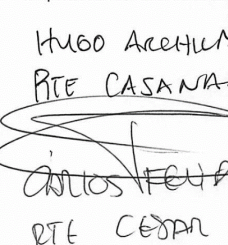 HUGO ARCHILA
RTE CASANA
CARLOS FELIP
RTE CESAR